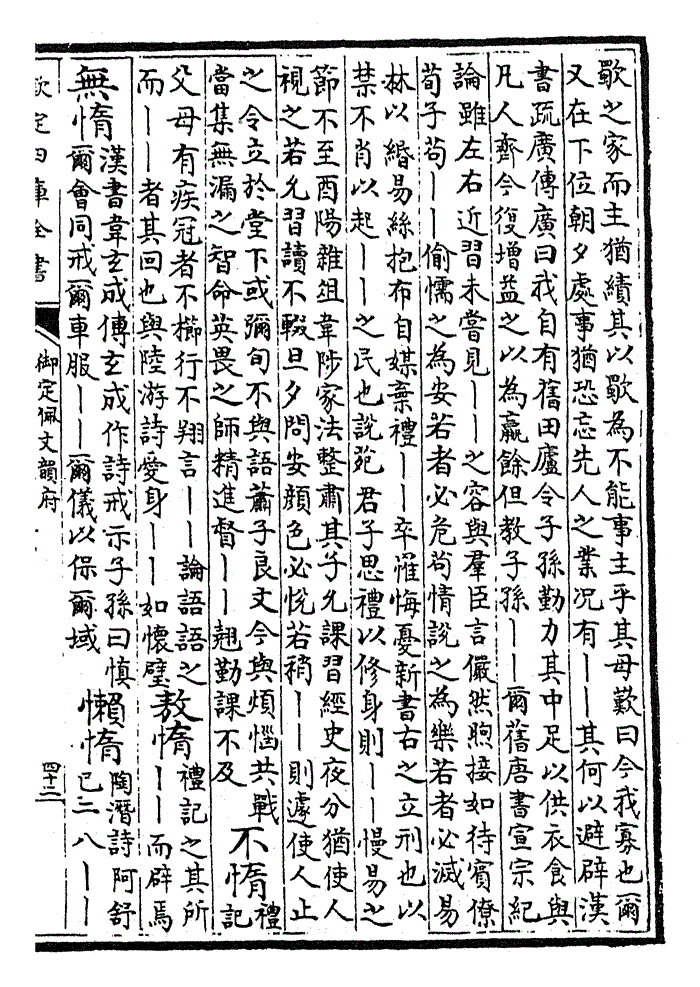 歜之家而主猶績其以歜為不能事主乎其母歎曰今我寡也爾
又在下位朝夕處事猶恐忘先人之業况有丨丨其何以避辟漢
書疏廣傳廣曰我自有舊田廬令子孫勤力其中足以供衣食與
凡人齊今復增益之以為贏餘但教子孫丨丨爾舊唐書宣宗紀
論雖左右近習未嘗見丨丨之容與羣臣言儼然煦接如待賓僚
荀子苟丨丨偷懦之為安若者必危茍情說之為樂若者必滅易
林以緡易絲抱布自媒棄禮丨丨卒罹悔憂新書右之立刑也以
禁不肖以起丨丨之民也說苑君子思禮以修身則丨丨慢易之
節不至酉陽雜俎韋陟家法整肅其子允課習經史夜分猶使人
視之若允習讀不輟旦夕問安顏色必悅若稍丨丨則遽使人止
之令立於堂下或彌旬不與語蕭子良文今與煩惱共戰
當集無漏之智命英畏之師精進督丨丨翹勤課不及
不惰
禮
記
父母有疾冠者不櫛行不翔言丨丨論語語之
而丨丨者其回也與陸游詩愛身丨丨如懷璧
敖惰
禮記之其所
丨丨而辟焉
無惰
漢書韋玄成傳玄成作詩戒示子孫曰慎
爾會同戒爾車服丨丨爾儀以保爾域
懶惰
陶潛詩阿舒
已二八丨丨
欽定四庫全書
御定佩文韻府
四十二